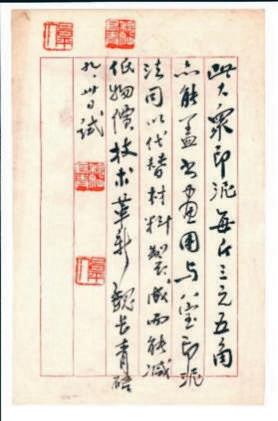 此大众印泥每斤三元五角
亦能盖书画用与八宝印泥
法同以代替材料制成而能减
低物價技术革新魏长青
九、卅日试